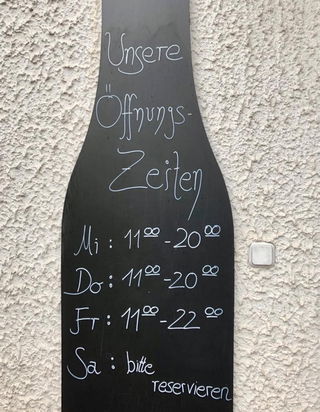 Unsere
Öffnungs-
Zeiten
Mi : 11⁰⁰-20⁰⁰
Do : 11⁰⁰-20⁰⁰
Fr : 11⁰⁰-22⁰⁰
Sa : bitte
reservieren